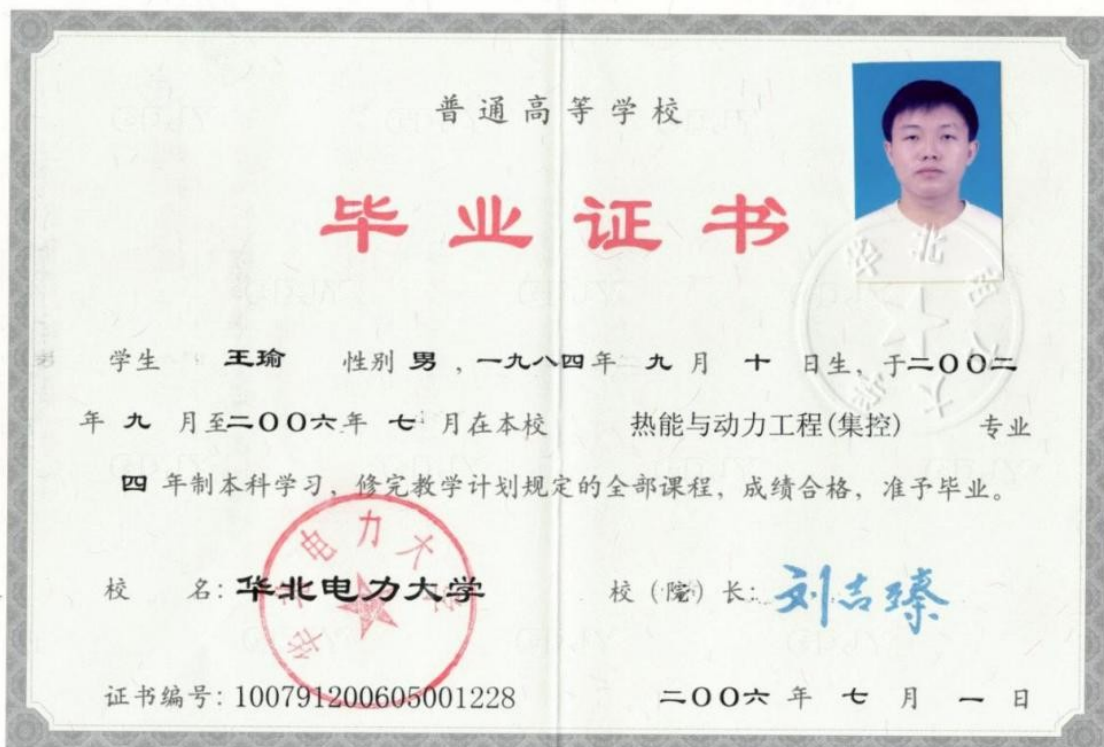 普通高等学校
毕业证书
学生 王瑜 性别 男，一九八四年 九 月 十 日生，于二〇〇二
年 九 月至二〇〇六年 七 月在本校 热能与动力工程(集控) 专业
四 年制本科学习，修完教学计划规定的全部课程，成绩合格，准予毕业。
校 名：华北电力大学
校（院）长：刘吉臻
证书编号：100791200605001228
二〇〇六 年 七 月 一 日
华北电力大学
华北电力大学